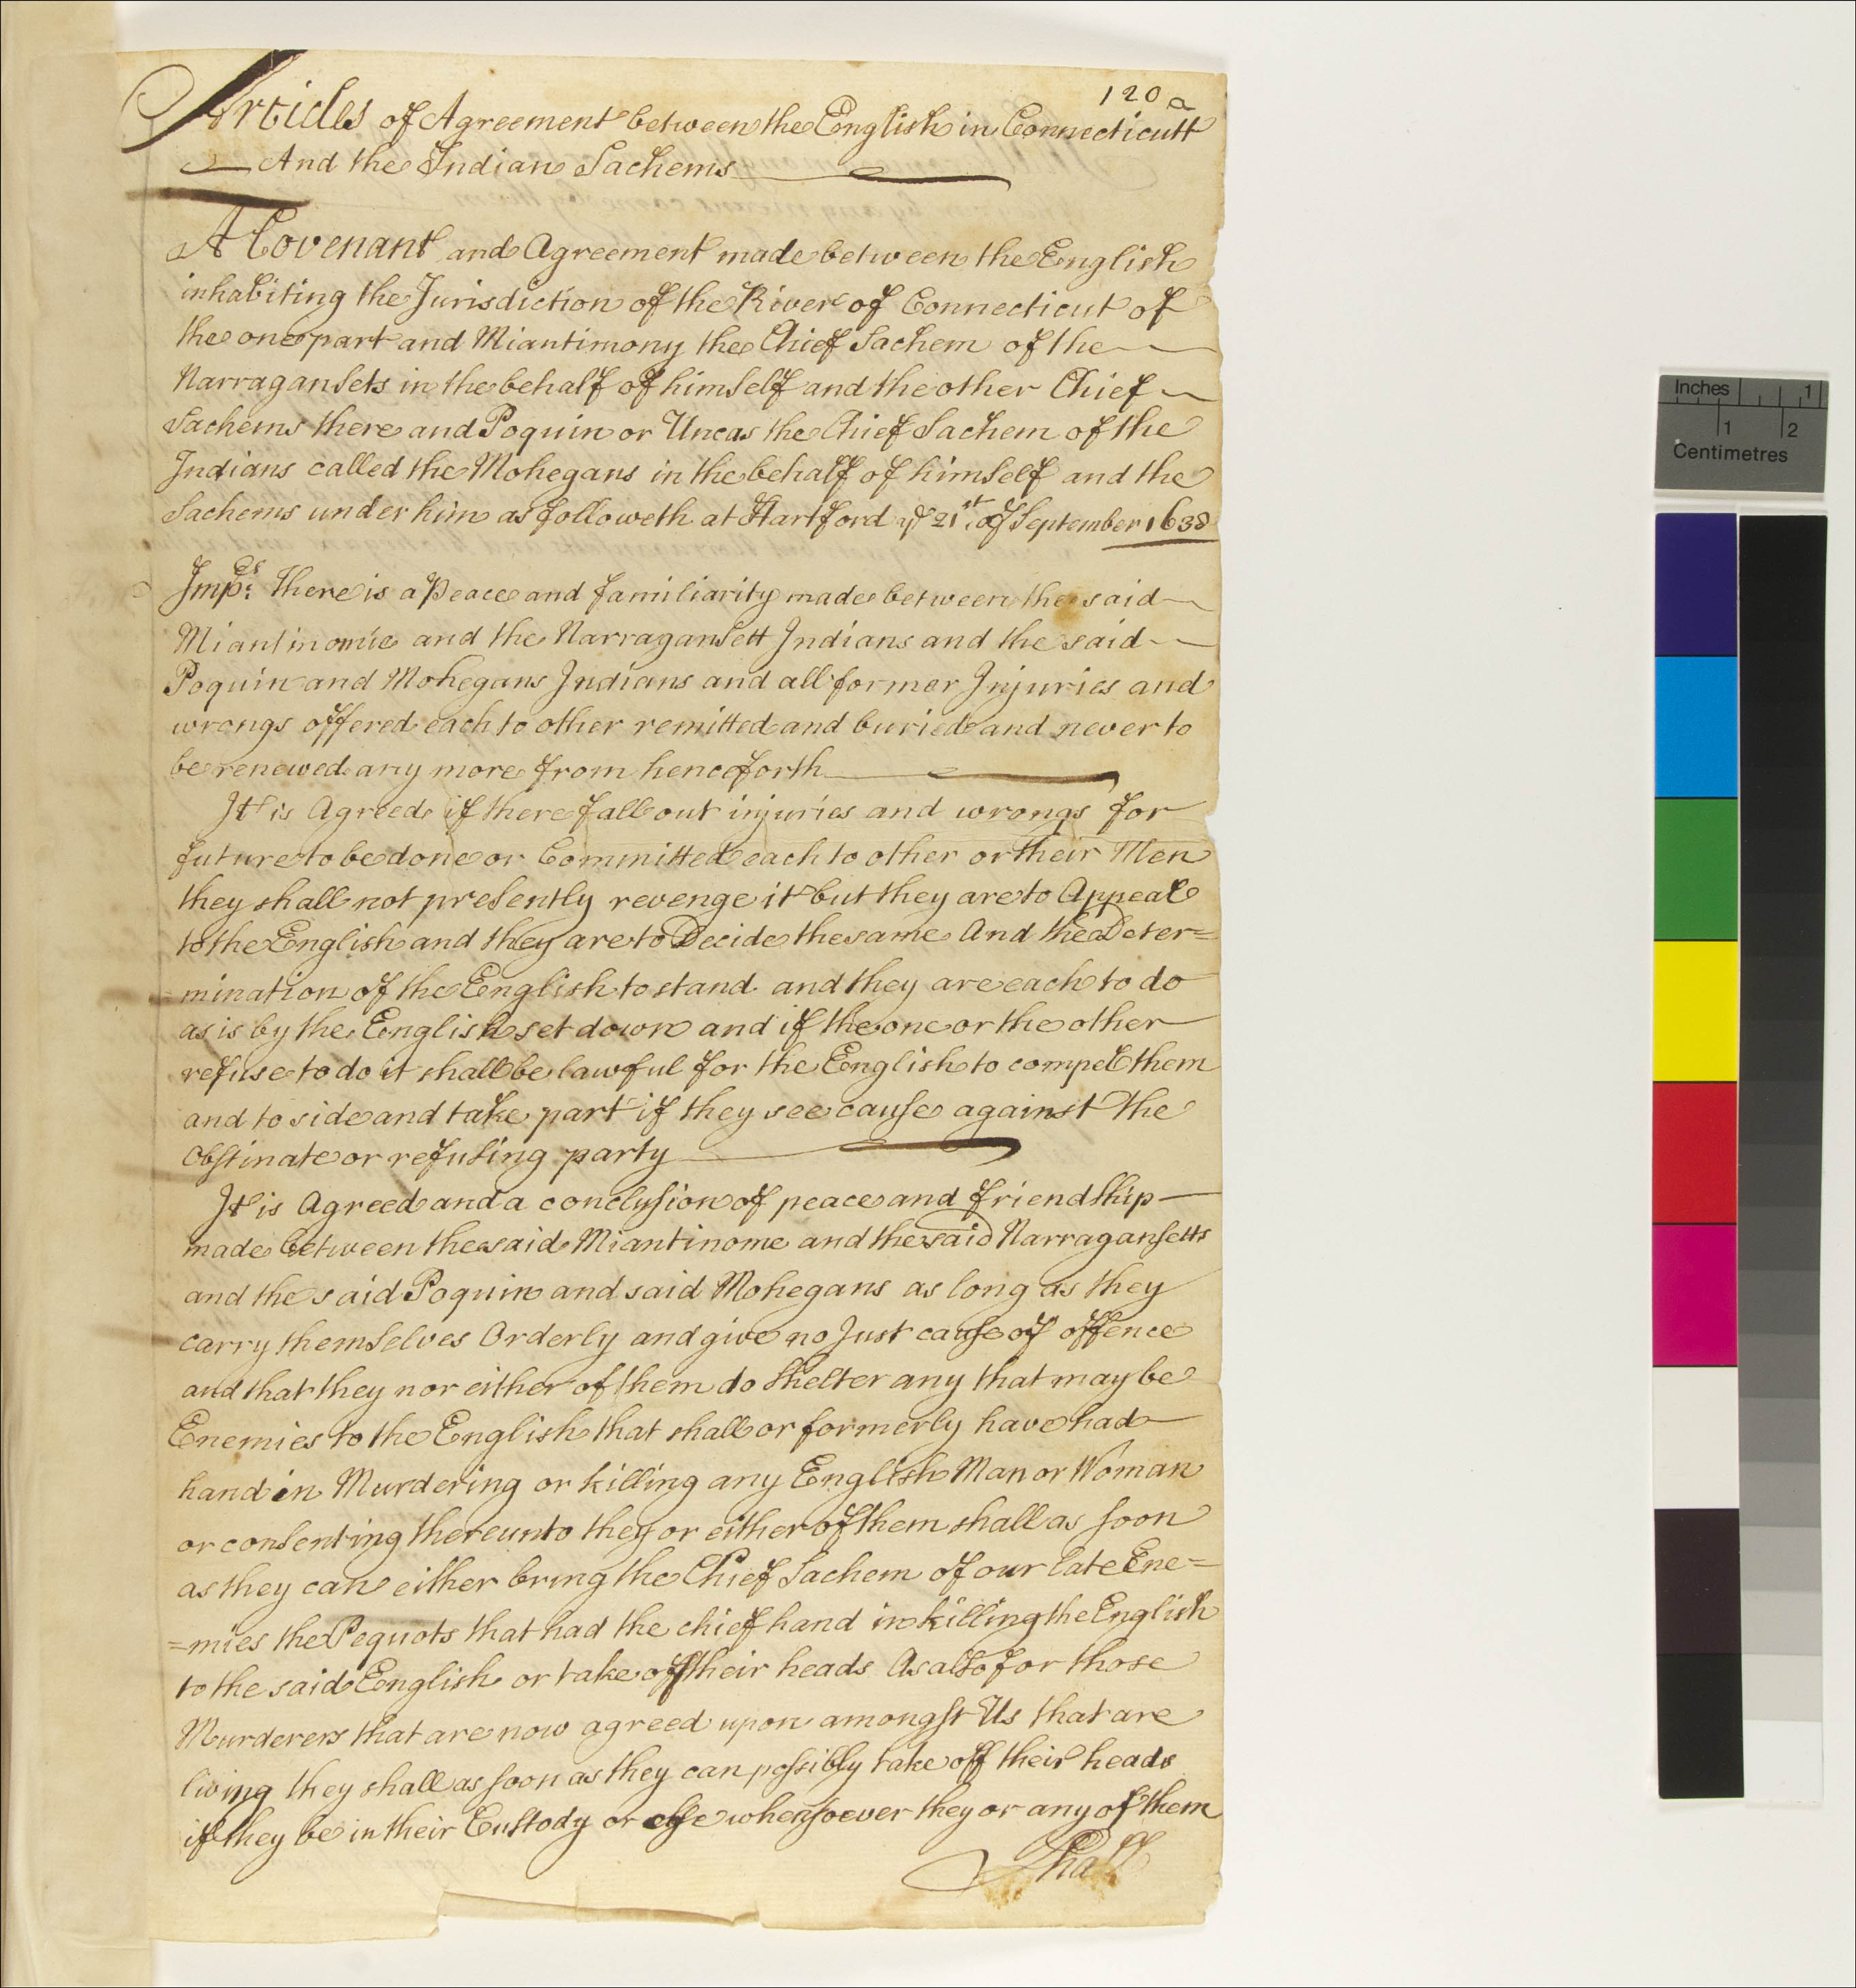 120 a
Articles of Agreement between the English in Connecticutt
And the Indian Sachems
A Covenant and Agreement made between the English
inhabiting the Jurisdiction of the River of Connecticut of
the one part and Miantimony the Chief Sachem of the
Narragansets in the behalf of himself and the other Chief
Sachems there and Poquin or Uncas the Chief Sachem of the
Indians called the Mohegans in the behalf of himself and the
Sachems under him as followeth at Hartford ye 21st of September 1638
Imprs: There is a Peace and familiarity made between the said
Miantinomie and the Narragansett Indians and the said
Poquin and Mohegans Indians and all former Injuries and
wrongs offered each to other remitted and buried and never to
be renewed any more from henceforth
It is Agreed if there fall out injuries and wrongs for
future to be done or Committed each to other or their Men
they shall not presently revenge it but they are to Appeal
to the English and they are to Decide the same And the Deter=
=mination of the English to stand and they are each to do
as is by the English set down and if the one or the other
refuse to do it shall be lawful for the English to compel them
and to side and take part if they see cause against the
Obstinate or refusing party
It is Agreed and a conclusion of peace and friendship
made between the said Miantinome and the said Narragansetts
and the said Poquin and said Mohegans as long as they
carry themselves Orderly and give no Just cause of offence
and that they nor either of them do shelter any that may be
Enemies to the English that shall or formerly have had
hand in Murdering or killing any English Man or Woman
or consenting thereunto they or either of them shall as soon
as they can either bring the Chief Sachem of our late Ene=
=mies the Pequots that had the chief hand in killing the English
to the said English or take off their heads As also for those
Murderers that are now agreed upon amongst Us that are
living they shall as soon as they can possibly take off their heads
if they be in their Custody or else whensoever they or any of them
Shall
Inches 1
1 2
Centimetres